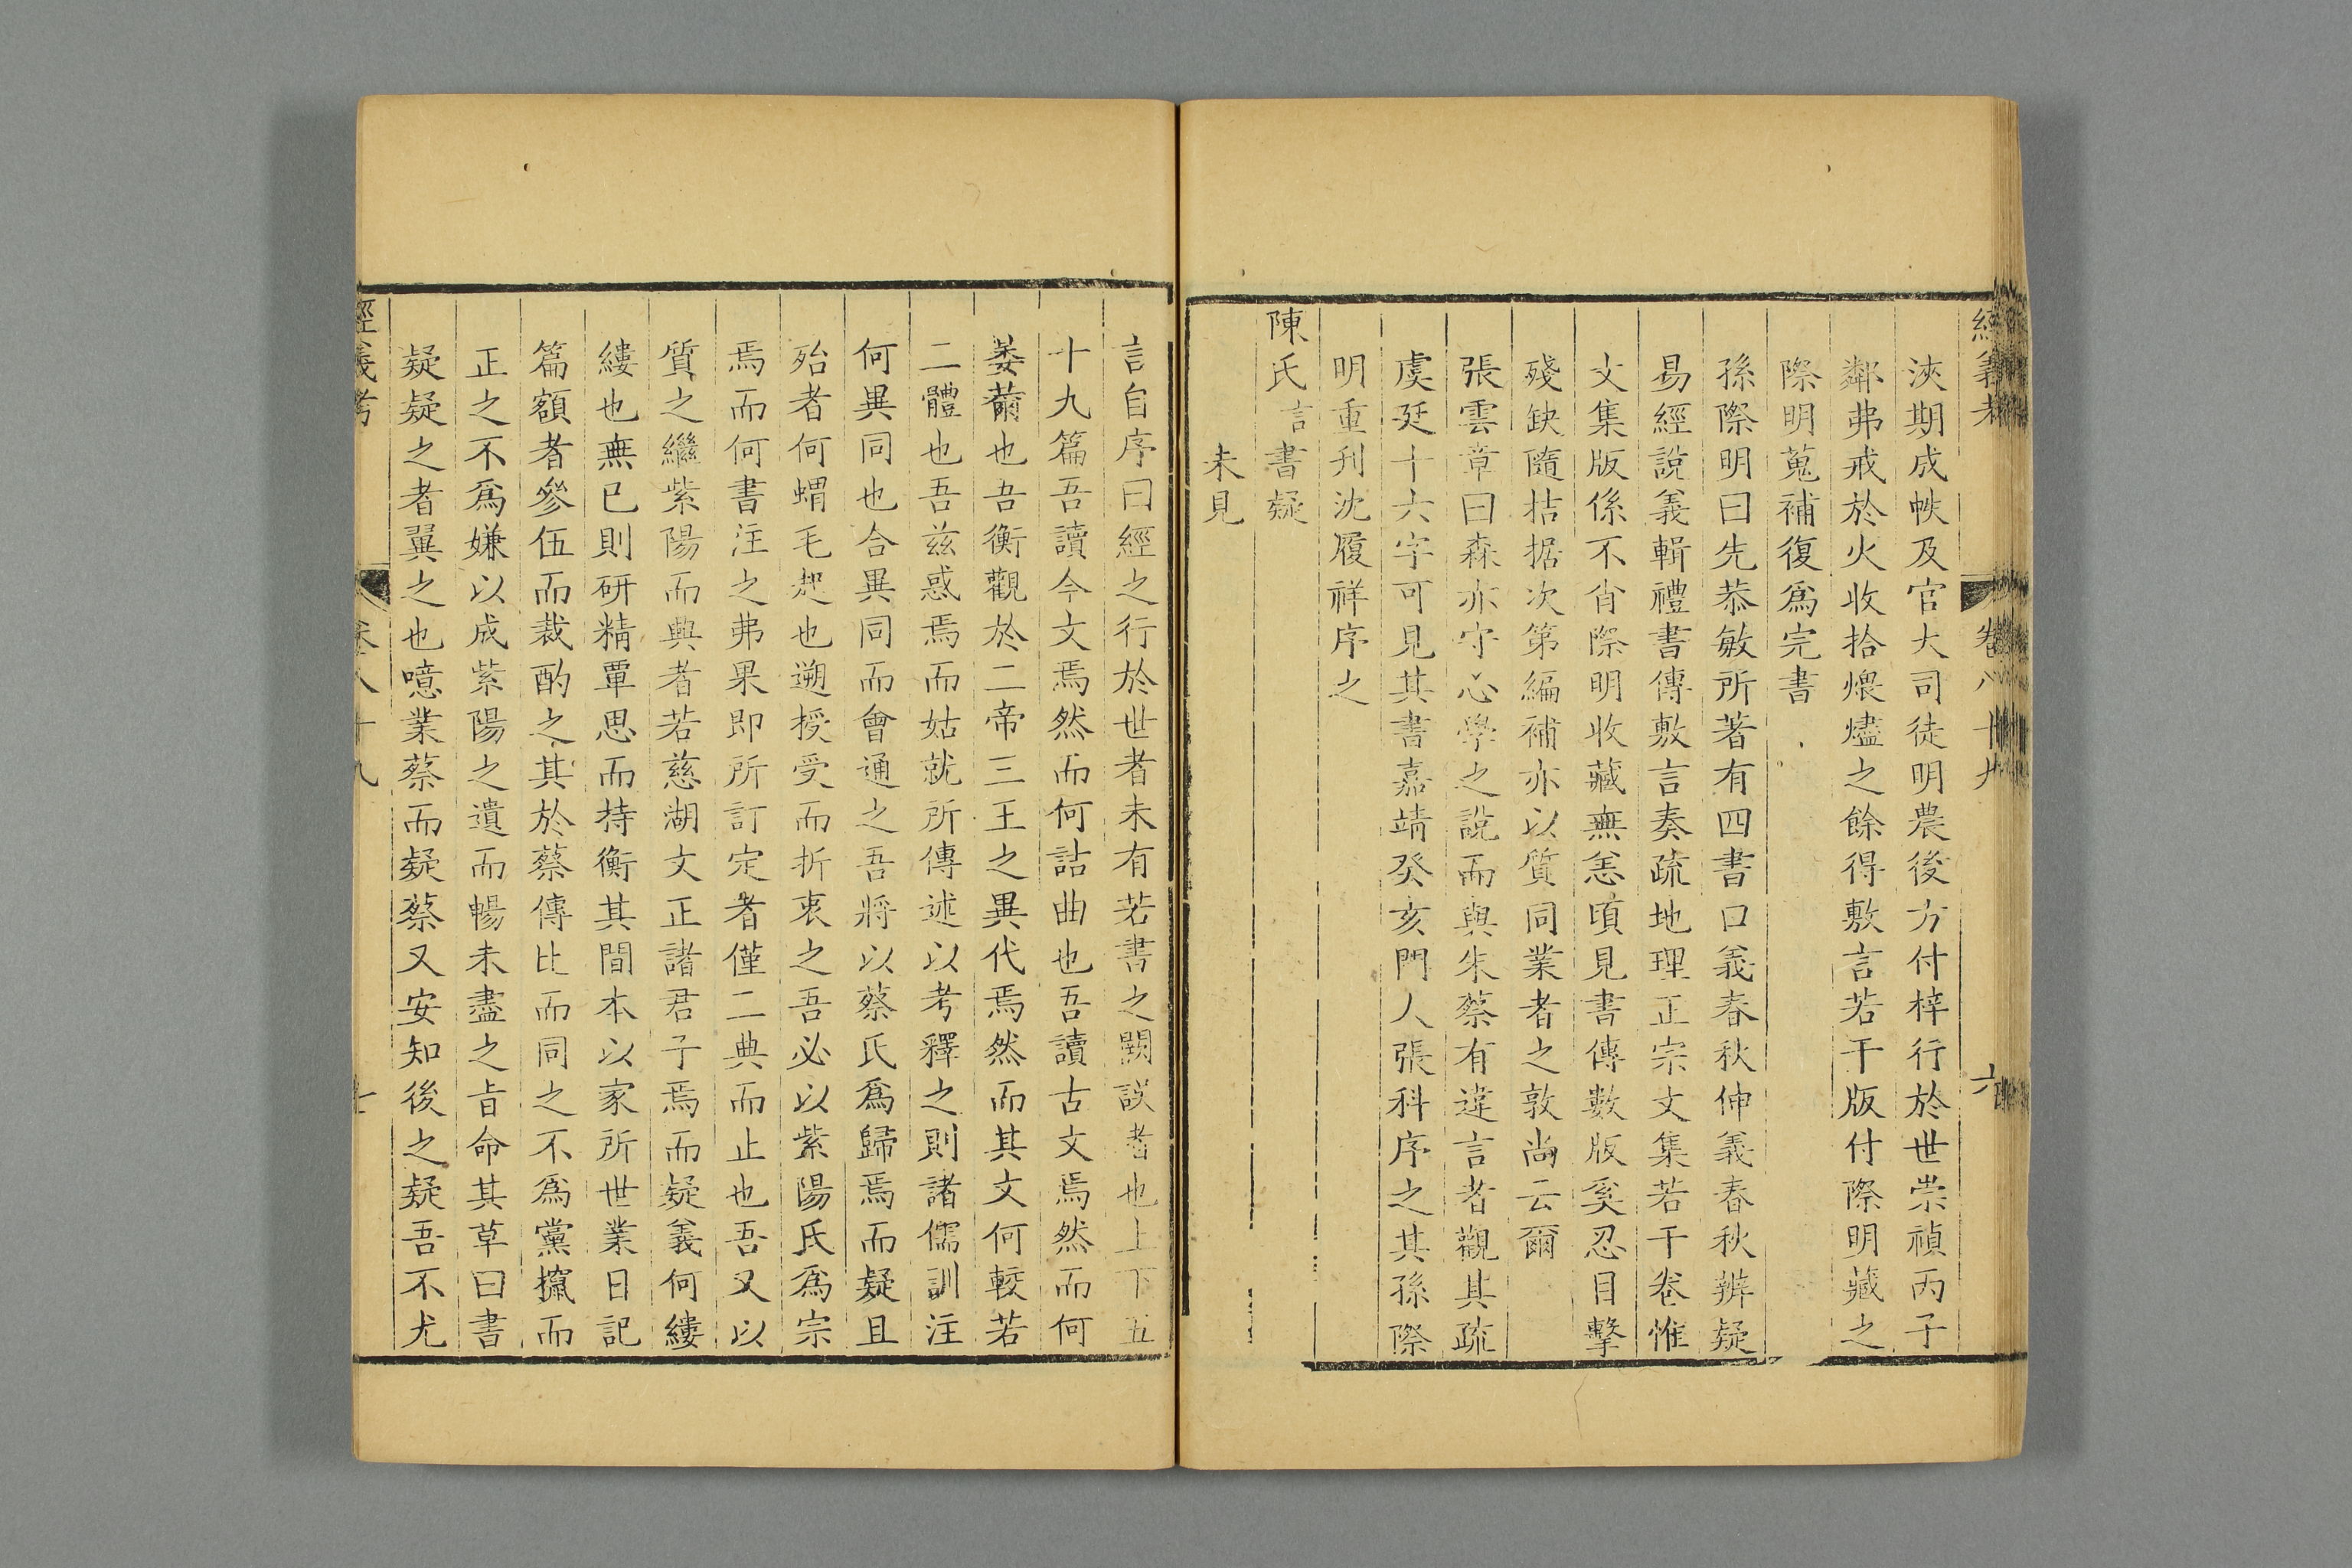 經義考 卷八十九 六
浹期成帙及官大司徒明農後方付梓行於世崇禎丙子
鄰弗戒於火收拾煨燼之餘得敷言若干版付際明藏之
際明蒐補復爲完書
孫際明曰先恭敏所著有四書口義春秋伸義春秋辨疑
易經說義輯禮書傳敷言奏疏地理正宗文集若干卷惟
文集版係不肖際明收藏無恙頃見書傳數版奚忍目擊
殘缺隨拮据次第編補亦以質同業者之敦尚云爾
張雲章曰森亦守心學之說而與朱蔡有違言者觀其疏
虞廷十六字可見其書嘉靖癸亥門人張科序之其孫際
明重刋沈履祥序之
陳氏言書疑
未見
言自序曰經之行於世者未有若書之闕誤者也上下五
十九篇吾讀今文焉然而何詰曲也吾讀古文焉然而何
萎薾也吾衡觀於二帝三王之異代焉然而其文何較若
二體也吾兹惑焉而姑就所傳述以考釋之則諸儒訓注
何異同也合異同而會通之吾將以蔡氏爲歸焉而疑且
殆者何蝟毛起也遡授受而折衷之吾必以紫陽氏爲宗
焉而何書注之弗果即所訂定者僅二典而止也吾又以
質之繼紫陽而興者若慈湖文正諸君子焉而疑義何縷
縷也無已則研精覃思而持衡其間本以家所世業日記
篇額者參伍而裁酌之其於蔡傳比而同之不爲黨攛而
正之不爲嫌以成紫陽之遺而暢未盡之旨命其草曰書
疑疑之者翼之也噫業蔡而疑蔡又安知後之疑吾不尤
經義考 卷八十九 七